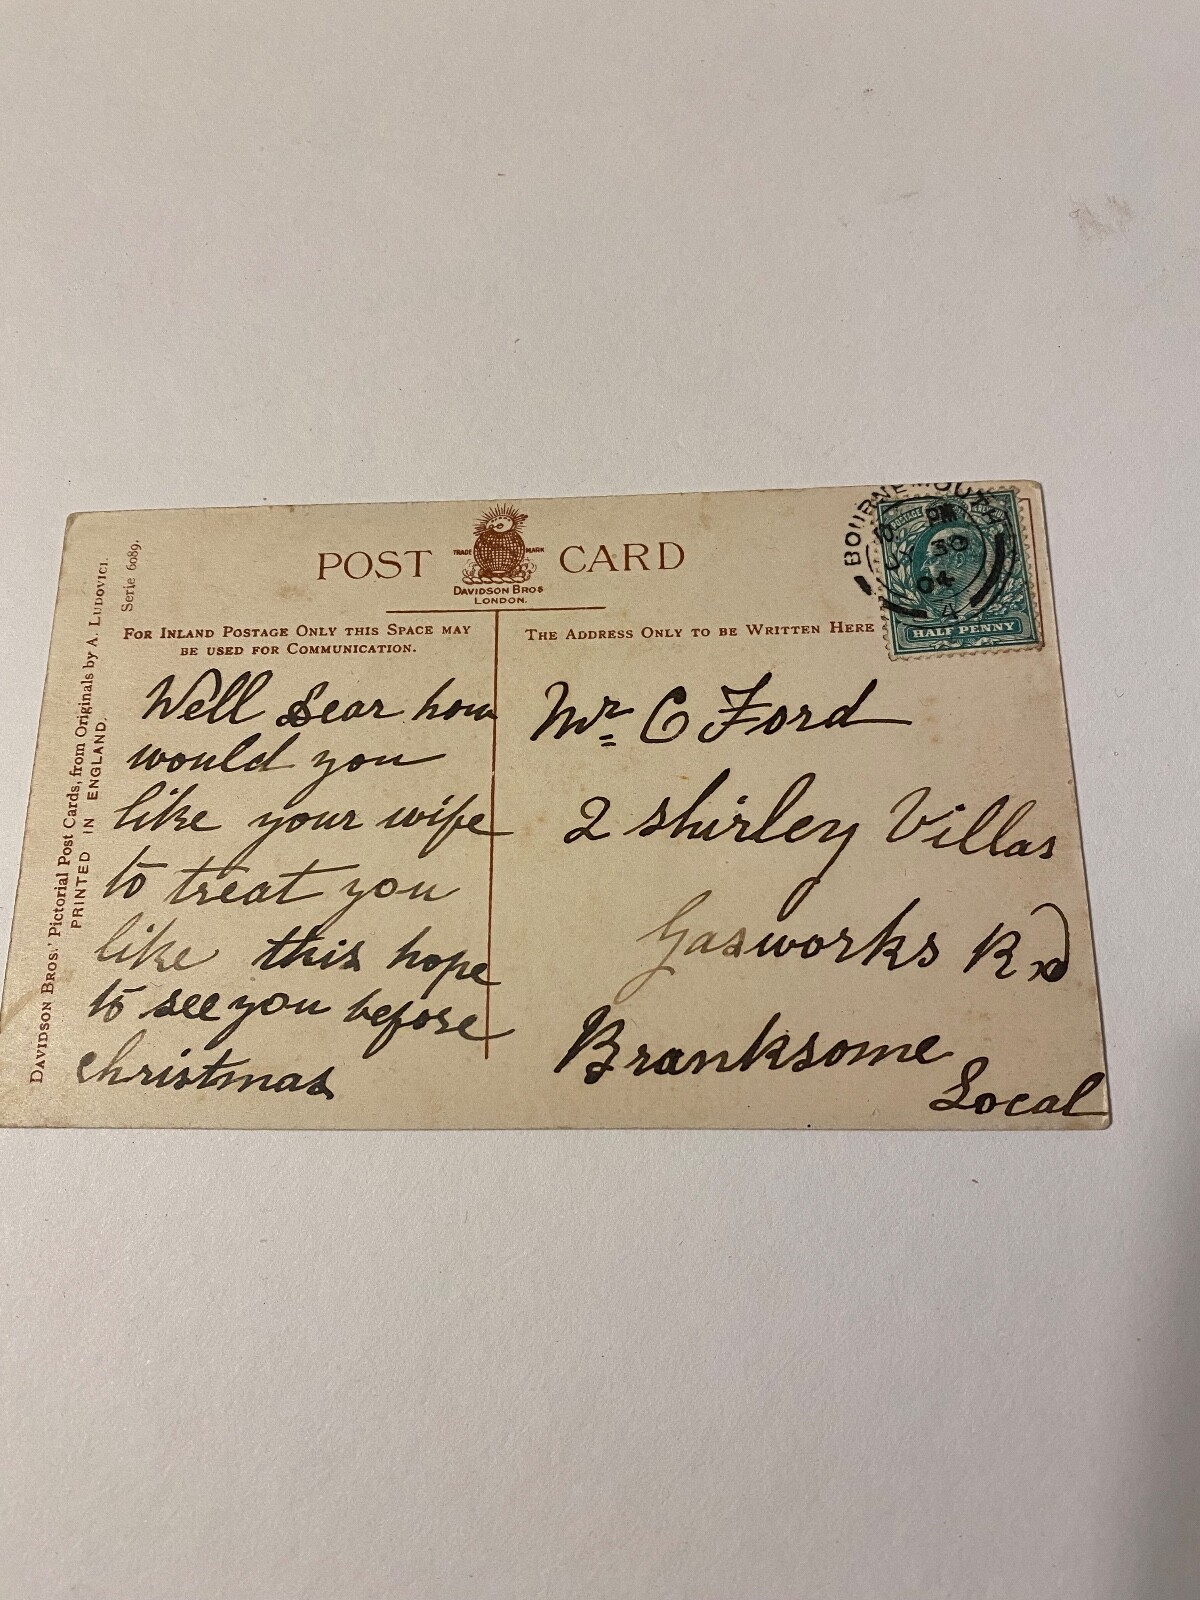 DAVIDSON BROS.' Pictorial Post Cards, from Originals by A. LUDOVICI.
PRINTED IN ENGLAND.
Serie 6089.
POST CARD
TRADE MARK
DAVIDSON BROS
LONDON.
FOR INLAND POSTAGE ONLY THIS SPACE MAY
BE USED FOR COMMUNICATION.
THE ADDRESS ONLY TO BE WRITTEN HERE
BOURNEMOUTH
PM
30
04
4
HALF PENNY
Well Dear how
would you
like your wife
to treat you
like this hope
to see you before
christmas
Mr C Ford
2 shirley Villas
Gasworks Rd
Branksome
Local